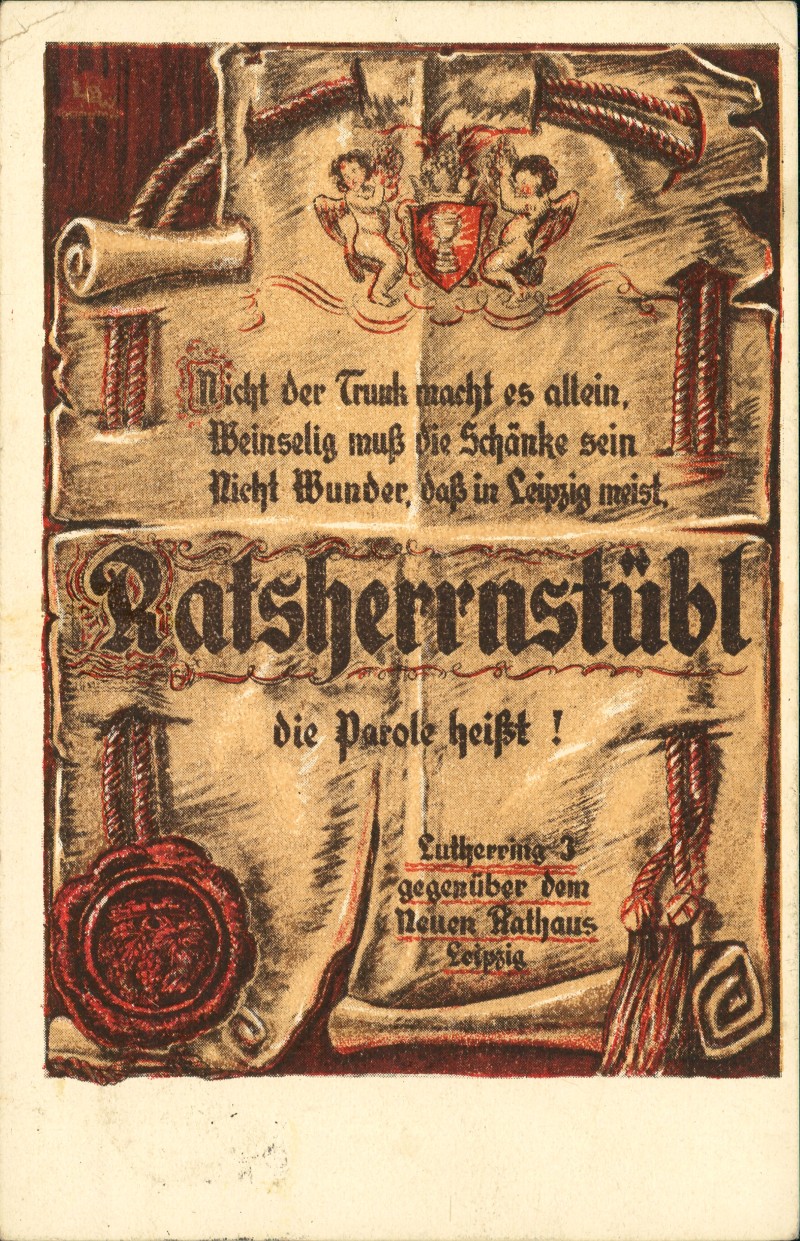 Nicht der Trunk macht es allein,
Weinselig muß die Schänke sein
Nicht Wunder, daß in Leipzig meist,
Ratsherrnstübl
die Parole heißt !
Lutherring 3
gegenüber dem
Neuen Rathaus
Leipzig